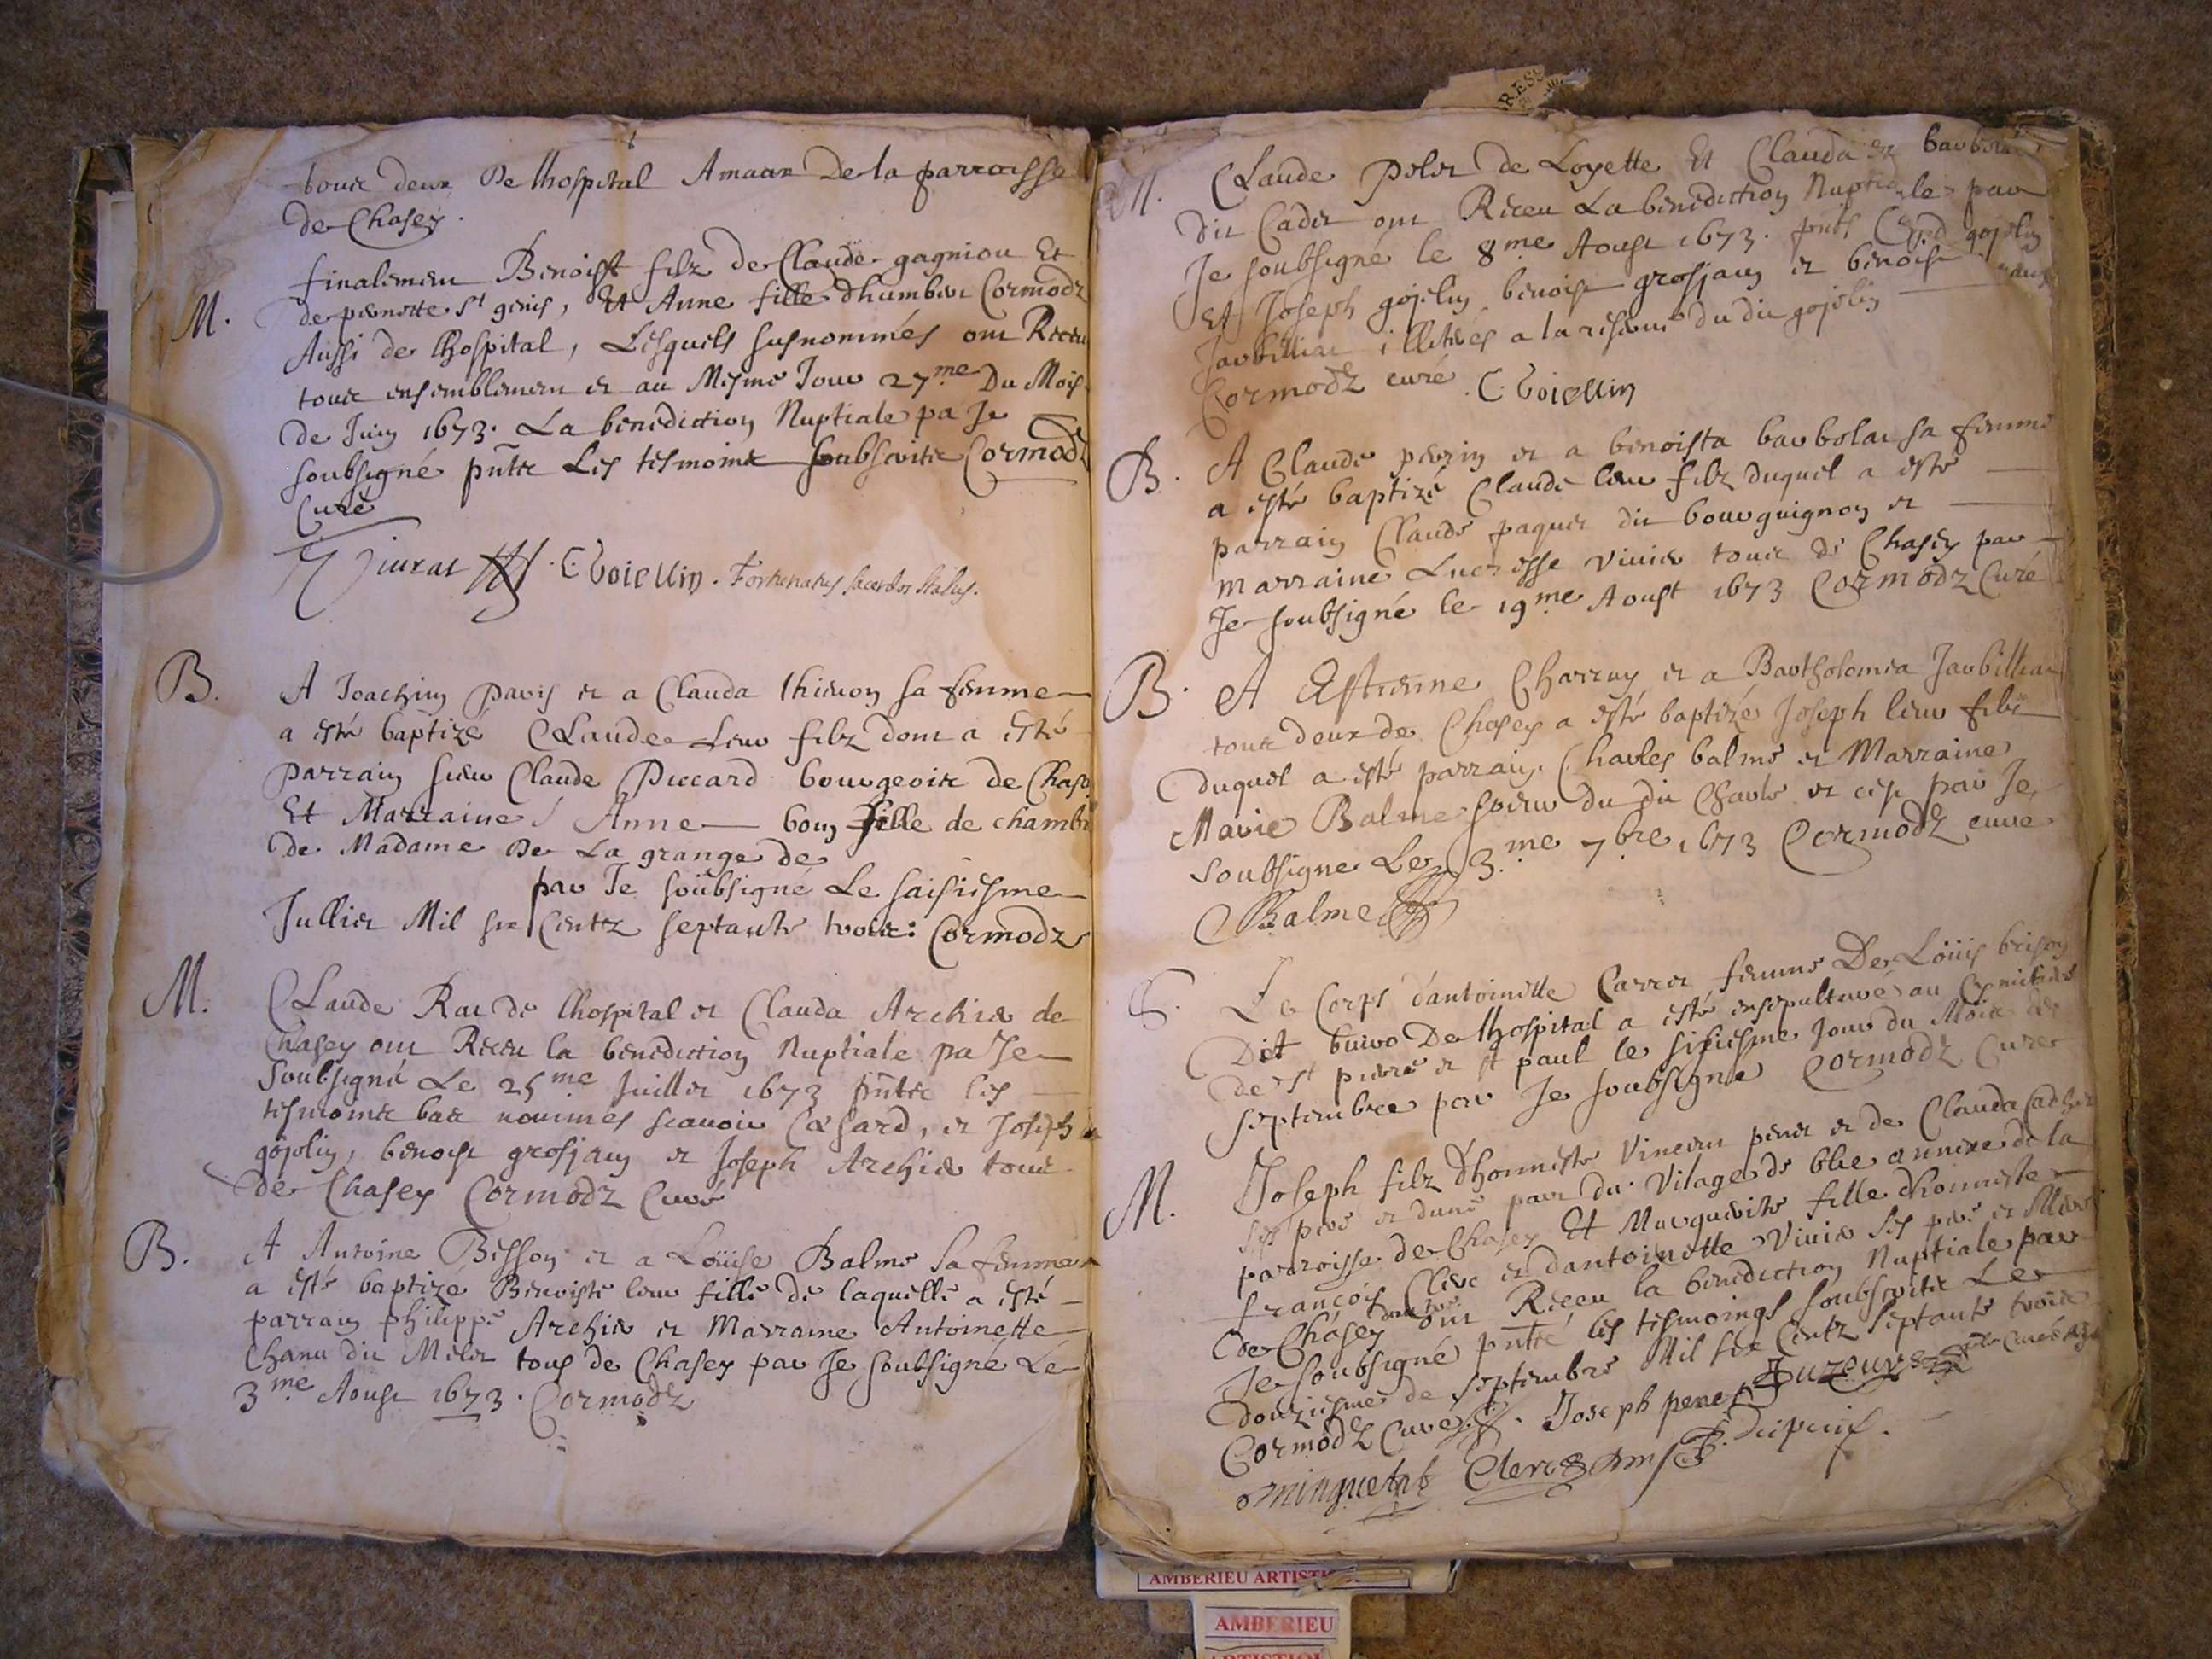 touts deux De lhospital Amaar De la parroisse
de Chasey.
M.
finalement Benoist filz de Claude gagniou Et
de pernette St genis, Et Anne fille dhumbert Cormodz
Aussi de lhospital, Lesquels susnommés ont Receu
touts ensemblement et au Mesme Jour 27me Du Mois
De Juin 1673. La benediction Nuptiale pa Je
soubsigné pnts Les tesmoins soubscrits Cormodz
Curé
Jiurat C. Goiellin. Fortunatus sacerdos Italus.
B.
A Joachim Paris et a Clauda thienon sa femme
a esté baptizé CLaude Leur filz dont a Esté
parrain sieur Claude Piccard bourgeois de Chasey
Et Marraine Anne bon fille de chambre
de Madame De La grange de
par Je soubsigné Le saisiesme
Jullier Mil six Centz septante trois: Cormodz
M.
CLaude Rat de lhospital et Clauda Archier de
Chasey ont Receu la benediction Nuptiale pa Je
Soubsigné Le 25me Juillet 1673 pnts les
tesmoins bas nommés scavoir Cæsard, et Joseph
gojelin, benoist grosjean et Joseph Archier touts
de Chasey Cormodz Curé
B.
A Antoine Bisson et a Loüise Balme Sa femme
a esté baptizé Benoiste leur fille de laquelle a esté
parrain philippe Archier et Marraine Antoinette
Chanu dit Melet tous de Chasey par Je soubsigné Le
3me Aoust 1673. Cormodz
M.
CLaude Pelet de Loyette Et Clauda et barbolat
dit Cadet ont Receu La benediction Nuptiale par
Je soubsigné le 8me Aoust 1673. pnts Cæsard gojelin
Et Joseph gojelin benoist grosjean et benoist
Jarbilliat illitrés a la reserve du dit gojelin
Cormodz curé. C. Goiellin
B.
A Claude perrin et a benoista barbolat sa femme
a esté baptizé Claude leur filz duquel a esté
parrain Claude paquet dit bourguignon et
marraine Lucresse Vivier touts de Chasey par
Je soubsigné le 19me Aoust 1673 Cormodz Curé
B.
A Estienne Charruy et a Bartholomea Jarbilliat
touts deux de Chasey a esté baptizé Joseph leur filz
duquel a esté parrain Charles balme et Marraine
Marie Balme soeur du dit Charle et ce par Je
Soubsigne Le 3me 7bre 1673 Cormodz cure
Balme
S.
Le Corps dantoinette Carret femme De Loüis brison
Dit buivo De lhospital a esté ensepulturé au Cymitiere
de st pierre et st paul le sisiesme Jour du Mois de
septembre par Je soubsigné Cormodz Curé
M.
Joseph filz dhonneste Vincent penet et de Clauda Cadier
ses pere et dune part du Vilage de blie annexe de la
parroisse de Chasey Et Marguerite fille dhonneste
françois Clerc et dantoinette Vivier ses pere et Mere
de Chasey dautre ont Receu la benediction Nuptiale par
Je soubsigné pnts les tesmoings soubscrits Le
douziesme de septembre Mil six Centz septante trois
Cormodz Curé. Joseph penet
minguet Clerc
AMBERIEU ARTISTI
AMBERIEU